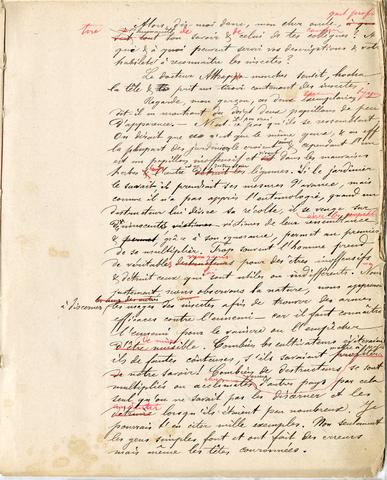 Alors, dis-moi donc, mon cher oncle, à
tout ton savoir & celui de tes collègues? A
quoi & à quoi peuvent servir vos descriptions & votre
habileté à reconnaître les insectes?
Le docteur sourit, hocha
la tête & prit un tiroir contenant des insectes.
Regarde, mon garçon, ces deux exemplaires,
dit-il en montrant du doigt deux papillons de peu
d'apparence — ils se ressemblent
On dirait que c'est le même genre, & en effet
la plupart des jardiniers le croient & cependant l'un
est un papillon inoffensif et vit dans les mauvaises
herbes & l'autre les légumes. Si le jardinier
le savait il prendrait ses mesures d'avance, mais
comme il n'a pas appris l'entomologie, quand un
destructeur lui dévore sa récolte, il se venge sur
d'innocentes victimes de leur ressemblance
& grâce à son ignorance, permet au premier
de se multiplier. Trop souvent l'homme prend
de véritables pour des êtres inoffensifs
& détruit ceux qui sont utiles ou indifférents.
justement, nous observons la nature, nous apprenons
à discerner
les insectes afin de trouver des armes
efficaces contre l'ennemi — car il faut connaître
l'ennemi pour le vaincre ou l'empêcher
de nuire. Combien les cultivateurs
ils de fautes coûteuses, s'ils savaient profiter
de notre savoir! Combien de destructeurs se sont
multipliés d'autres pays par cela
seul qu'on ne savait pas les discerner et les
lorsqu'ils étaient peu nombreux. Je
pourrais t'en citer mille exemples. Non seulement
les gens simples font et ont fait des erreurs
mais même les têtes couronnées.